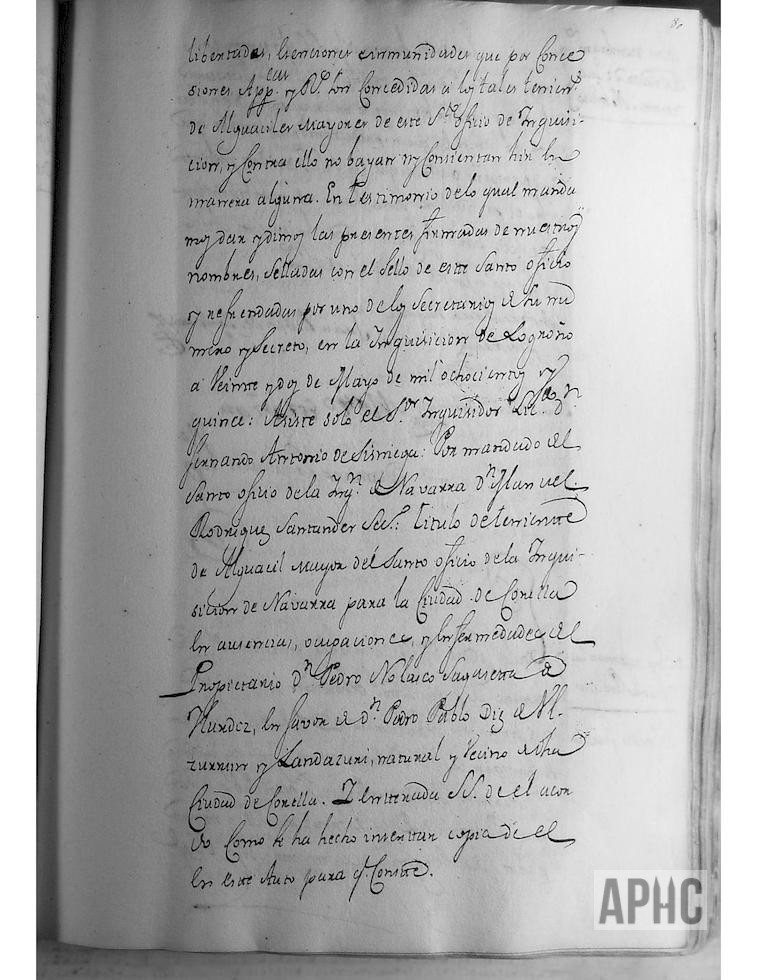 libertades, exenciones e inmunidades que por Conce
siones App.cas y R.s son Concedidas a los tales tenien.s
de Alguaciles Mayores de este S.to oficio de Inquisi-
cion, y Contra ello no bayan ny Consientan hir en
manera alguna. En testimonio delo qual manda
mos dar y dimos las presentes firmadas de nuestros
nombres, Selladas con el Sello de este Santo oficio
y refrendadas por uno de los Secretarios de su nu
mero y Secreto, en la Inquisicion de Logroño
a Veinte y dos de Mayo de mil ochocientos y
quince: Asiste solo el S.or Inquisidor Lic.do d.n
fernando Antonio de : Por mandado del
Santo oficio de la Inq.n de Navarra D.n Manuel
Rodriguez Santander Sec.: titulo de teniente
de Alguacil Mayor del Santo oficio de la Inqui-
sicion de Navarra para la Ciudad de Corella
en ausencias, ocupaciones, y enfermedades del
Propietario D.n Pedro Nolasco Sagaseta de
en favor de d.n Pedro Pablo Diz de Ul-
zurrun y Landazuri, natural y Vecino de dha
Ciudad de Corella. I enterada SS. de el acor
do Como se ha hecho insertar copia de el
en este Auto para q. Conste.
80
APHC